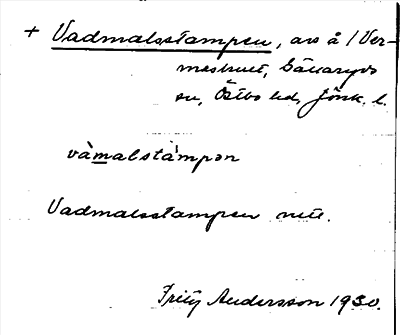 + Vadmalsstampen, avs å /Ver-
meshult, Bäckaryds
sn, Östbo hd, Jönk. l.
vàmalstàmpən
Vadmalsstampen
Fritz Andersson 1930.